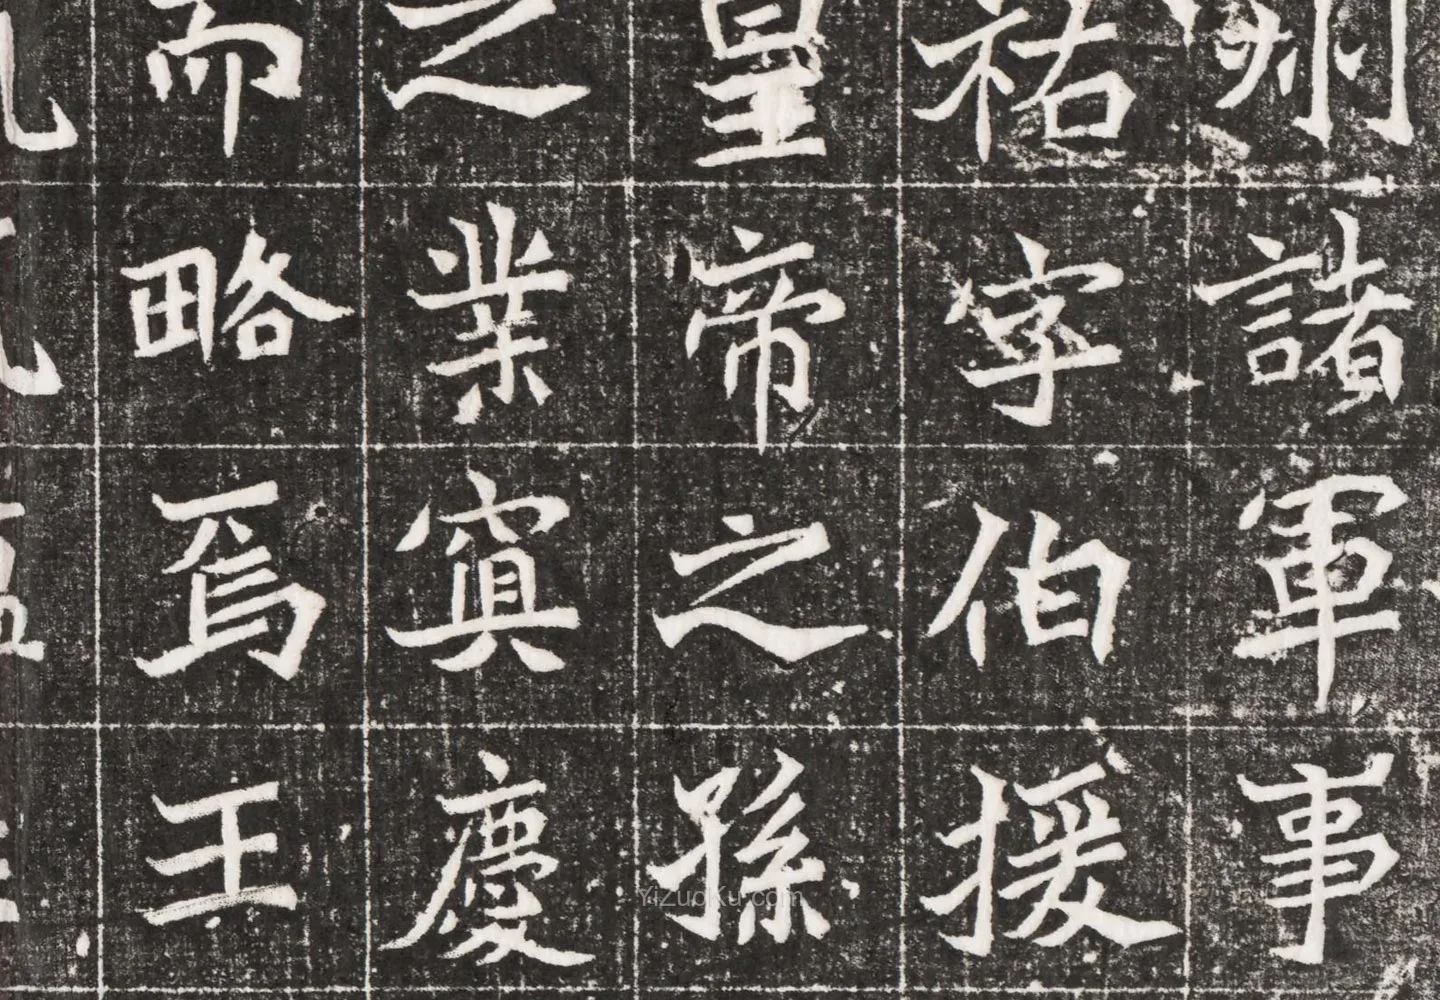 州諸軍事
祐字伯援
皇帝之孫
之業寘慶
而略焉王
YiZuoKu.com